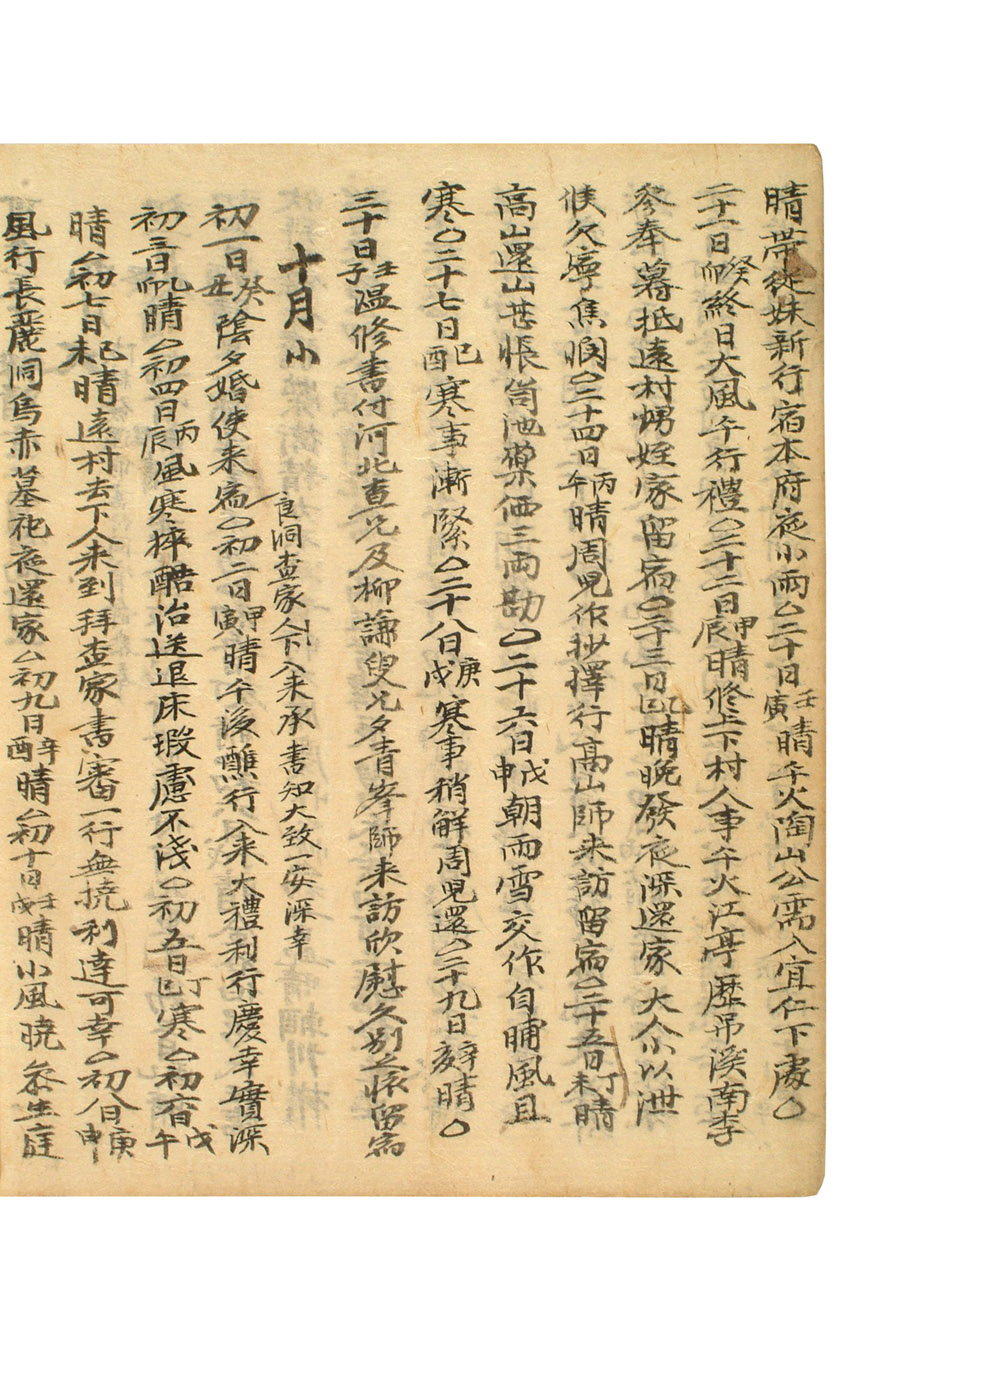 晴帶從妹新行宿本府夜小雨○二十日壬寅晴午火陶山公需入宜仁下處○
二十一日癸卯終日大風午行禮○二十二日甲辰晴修上下村人事午火江亭歷吊溪南李
參奉暮抵遠村甥姪家留宿○二十三日乙巳晴晚發夜深還家大人以泄
候欠寧焦悶○二十四日丙午晴周兒作抄擇行高山師來訪留宿○二十五日丁未晴
高山還山甚悵筒池藥価三両勘○二十六日戊申朝雨雪交作自晡風且
寒○二十七日己酉寒事漸緊○二十八日庚戌寒事稍解周兒還○二十九日辛亥晴○
三十日壬子温修書付河北査兄及柳謙叟兄夕青峯師來訪欣慰久別之懷留宿
十月小
良洞査家人下人來承書知大致一安深幸
初一日癸丑陰夕婚使來宿○初二日甲寅晴午後醮行入來大禮利行慶幸實深
初三日乙卯晴○初四日丙辰風寒猝酷治送退床瑕慮不淺○初五日丁巳寒○初六日戊午
晴○初七日己未晴遠村去下人來到拜査家書審一行無撓利達可幸○初八日庚申
風行長麗洞烏赤墓祀夜還家○初九日辛酉晴○初十日壬戌晴小風曉參生庭